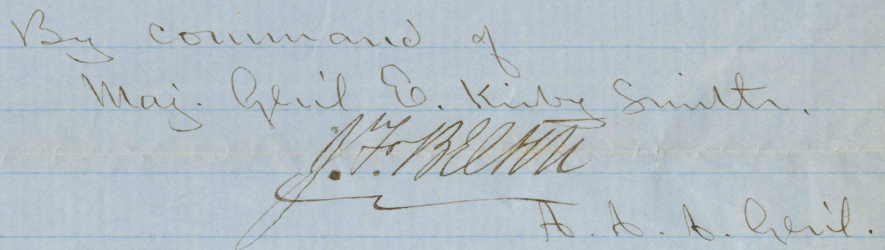 By command of
Maj. Genl E. Kirby Smith.
J. F. Belton
A. A. A. Genl.